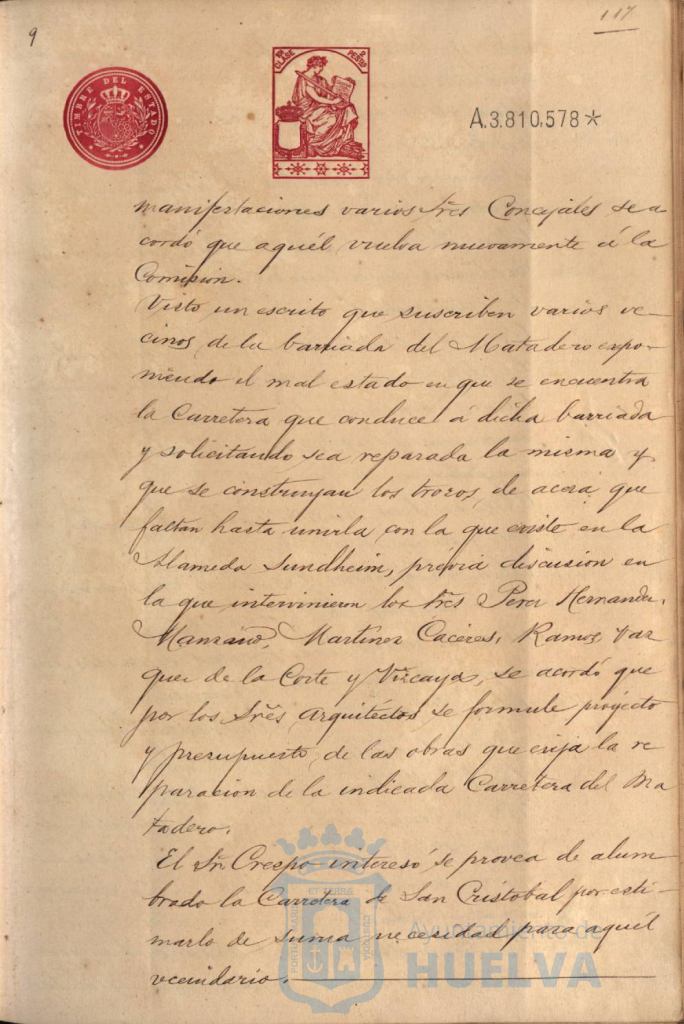 9
117
TIMBRE DEL ESTADO
CLASE
PESETA
A.3.810.578*
manifestaciones varios Sres Concejales se a
cordó que aquél vuelva nuevamente á la
Comision.
Visto un escrito que suscriben varios ve-
cinos de la barriada del Matadero expo-
niendo el mal estado en que se encuentra
la Carretera que conduce á dicha barriada
y solicitando sea reparada la misma y
que se construyan los trozos de acera que
faltan hasta unirla con la que existe en la
Alameda Sundheim, prévia discusion en
la que intervinieron los Sres Perez Hernandez,
Manzano, Martinez Caceres, Ramos, Vaz
quez de la Corte y Vizcaya, se acordó que
por los Sres Arquitectos se formule proyecto
y presupuesto de las obras que exija la re
paracion de la indicada Carretera del Ma
tadero.
El Sr. Crespo interesó se provea de alum
brado la Carretera de San Cristobal por esti-
marlo de suma necesidad para aquél
vecindario.
Ayuntamiento de
HUELVA